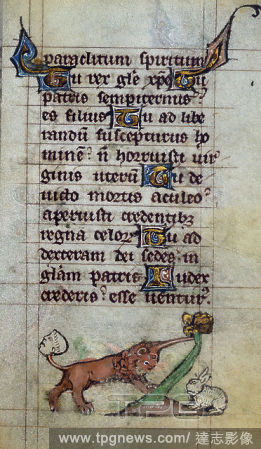 paraclitum spiritum
Tu rex gle xpe Tu
patris sempiternus
es filius Tu ad libe
randū suscepturus ho
minē: n̄ horruisti uir
ginis uterū Tu de
uicto mortis aculeo
aperuisti credentibȝ
regna celor Tu ad
dexteram dei sedes in
glām patris Iudex
crederis esse uentur⁹
TPG
www.tpgnews.com/ 達志影像